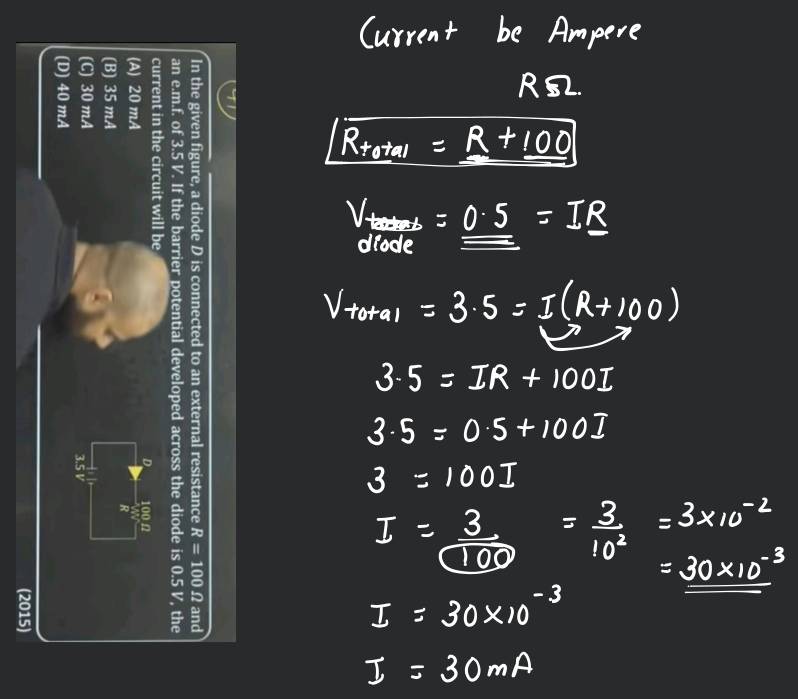 41
In the given figure, a diode D is connected to an external resistance R = 100 Ω and
an e.m.f. of 3.5 V. If the barrier potential developed across the diode is 0.5 V, the
current in the circuit will be
(A) 20 mA
(B) 35 mA
(C) 30 mA
(D) 40 mA
D
100 Ω
R
3.5 V
(2015)
Current be Ampere
R Ω.
Rtotal = R + 100
V diode = 0.5 = IR
Vtotal = 3.5 = I(R+100)
3.5 = IR + 100I
3.5 = 0.5 + 100I
3 = 100I
I = 3/100 = 3/10² = 3×10⁻²
= 30×10⁻³
I = 30×10⁻³
I = 30mA